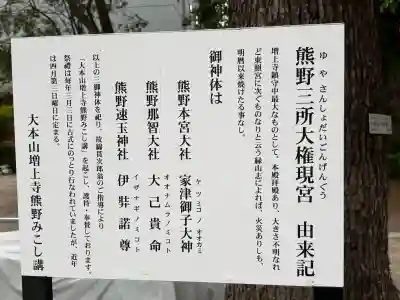 ゆやさんしょだいごんげんぐう
熊野三所大権現宮 由来記
増上寺鎮守中最大なものとして、本殿拝殿あり、大きさ不明なれ
ど東照宮に次ぐものなりと云う縁山志によれば、火災ありしも、
明暦以来焼けたる事なし。
御神体は
ケツミコノオオカミ
熊野本宮大社 家津御子大神
オオナムラノミコト
熊野那智大社 大己貴命
イザナギノミコト
熊野速玉大社 伊弉諾尊
以上の三御神体を祀り、
「大本山増上寺熊野みこし講」を起こし、護持・奉賛しております。
祭禮は毎年三月三日に古式にのっとり行なわれていましたが、近年
は四月第二日曜日に定まる。
大本山増上寺熊野みこし講